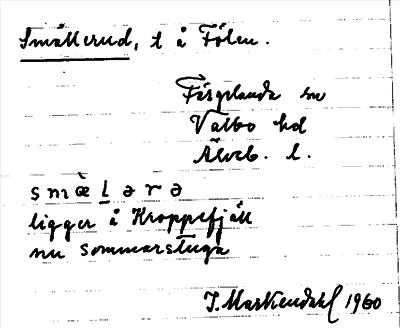 Smällerud, t å Fölen.
Färgelanda sn
Valbo hd
Älvsb. l.
smæ̀lərə
ligger å Kroppefjäll
nu sommarstuga
J. Markendahl 1960